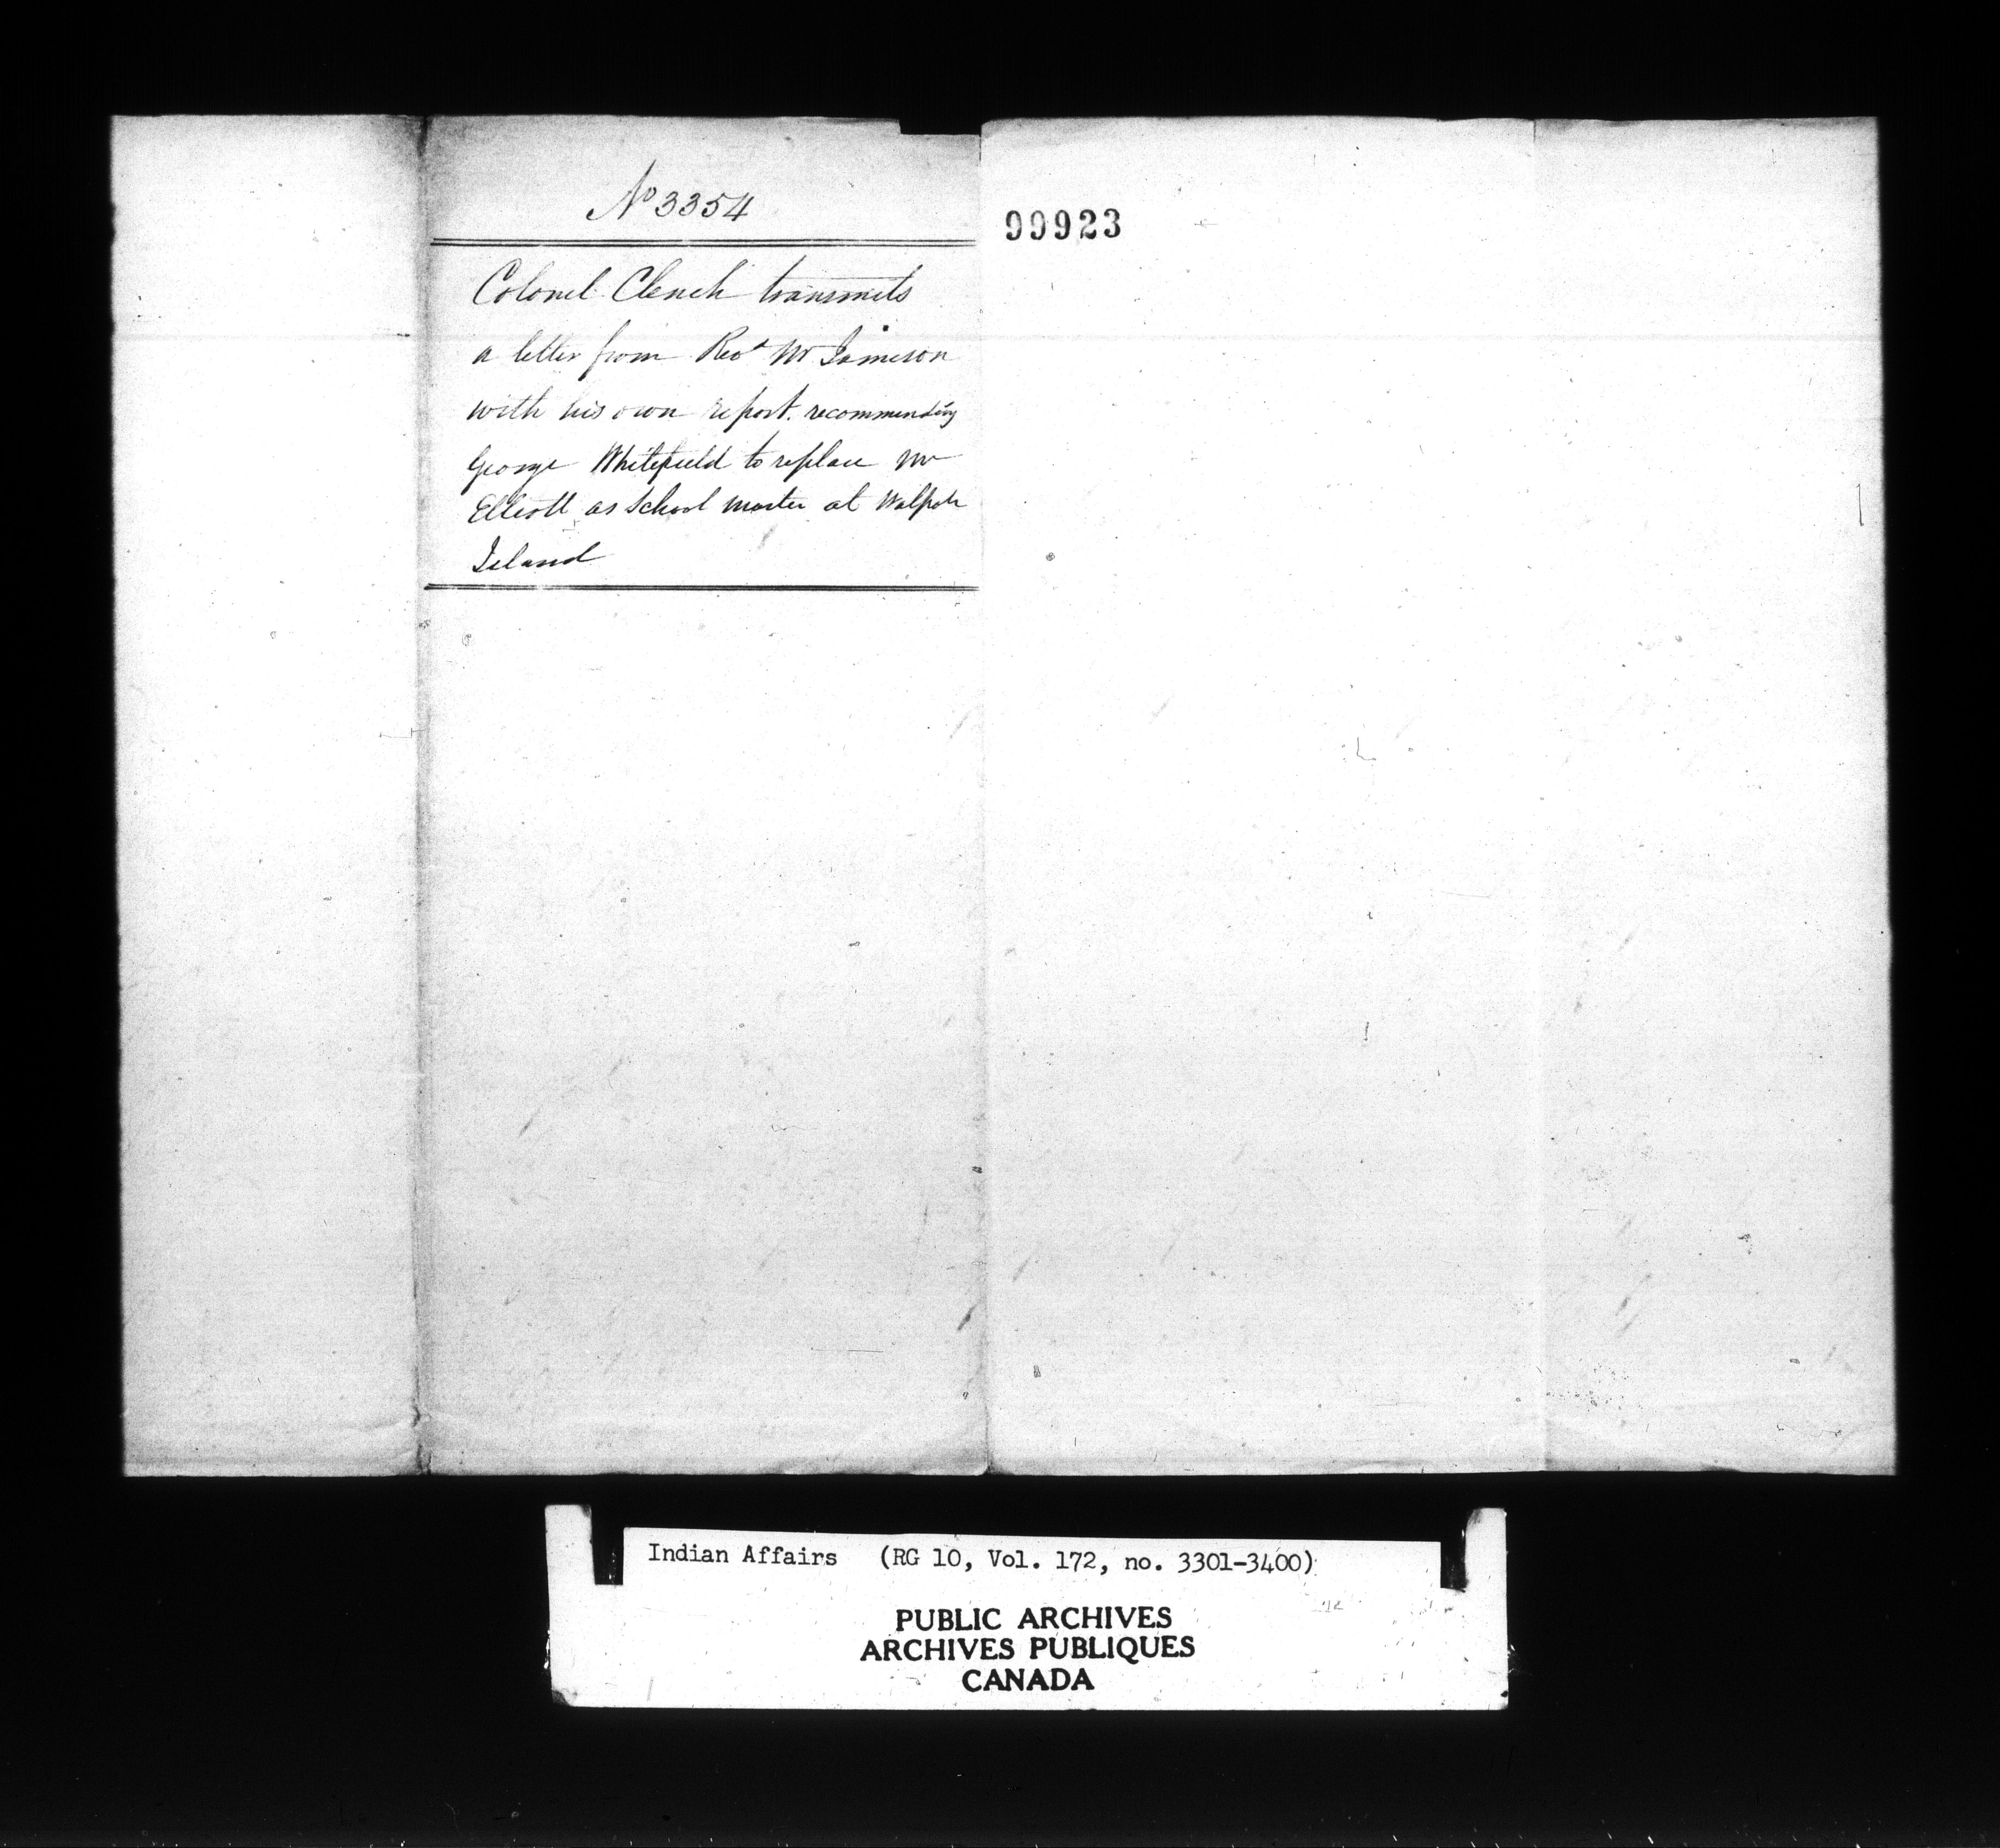 No 3354
99923
Colonel Clench transmits
a letter from Revd Mr Jameson
with his own report. recommending
George Whitefield to replace Mr
Elliott as School master at Walpole
Island
Indian Affairs (RG 10, Vol. 172, no. 3301-3400)
PUBLIC ARCHIVES
ARCHIVES PUBLIQUES
CANADA